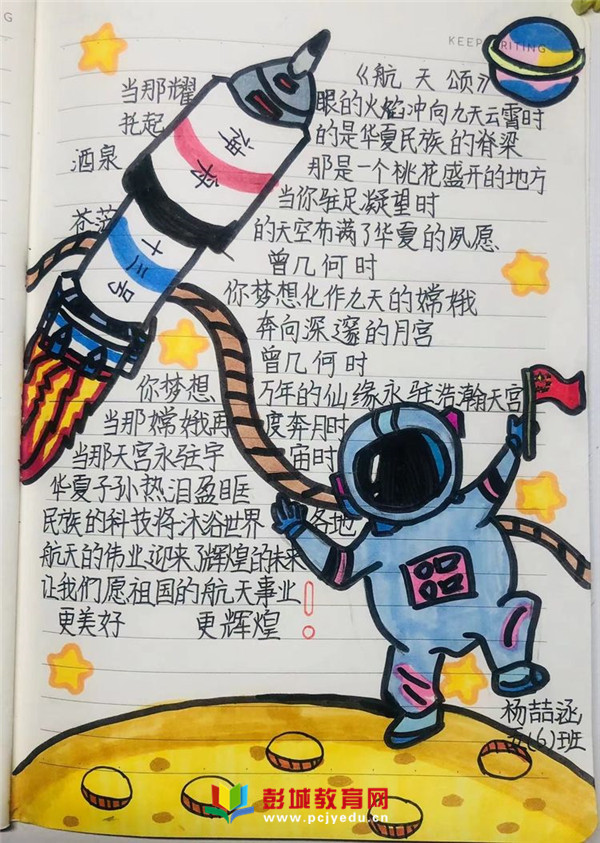 KEEP WRITING
《航天颂》
当那耀眼的火焰冲向九天云霄时
托起的是华夏民族的脊梁
酒泉那是一个桃花盛开的地方
当你驻足凝望时
苍茫的天空布满了华夏的夙愿
曾几何时
你梦想化作九天的嫦娥
奔向深邃的月宫
曾几何时
你梦想万年的仙缘永驻浩瀚天宫
当那嫦娥再度奔月时
当那天宫永驻宇宙时
华夏子孙热泪盈眶
民族的科技将沐浴世界各地
航天的伟业迎来辉煌的未来
让我们愿祖国的航天事业
更美好 更辉煌!
神舟
十三号
杨喆涵
五(6)班
彭城教育网
www.pcjyedu.cn